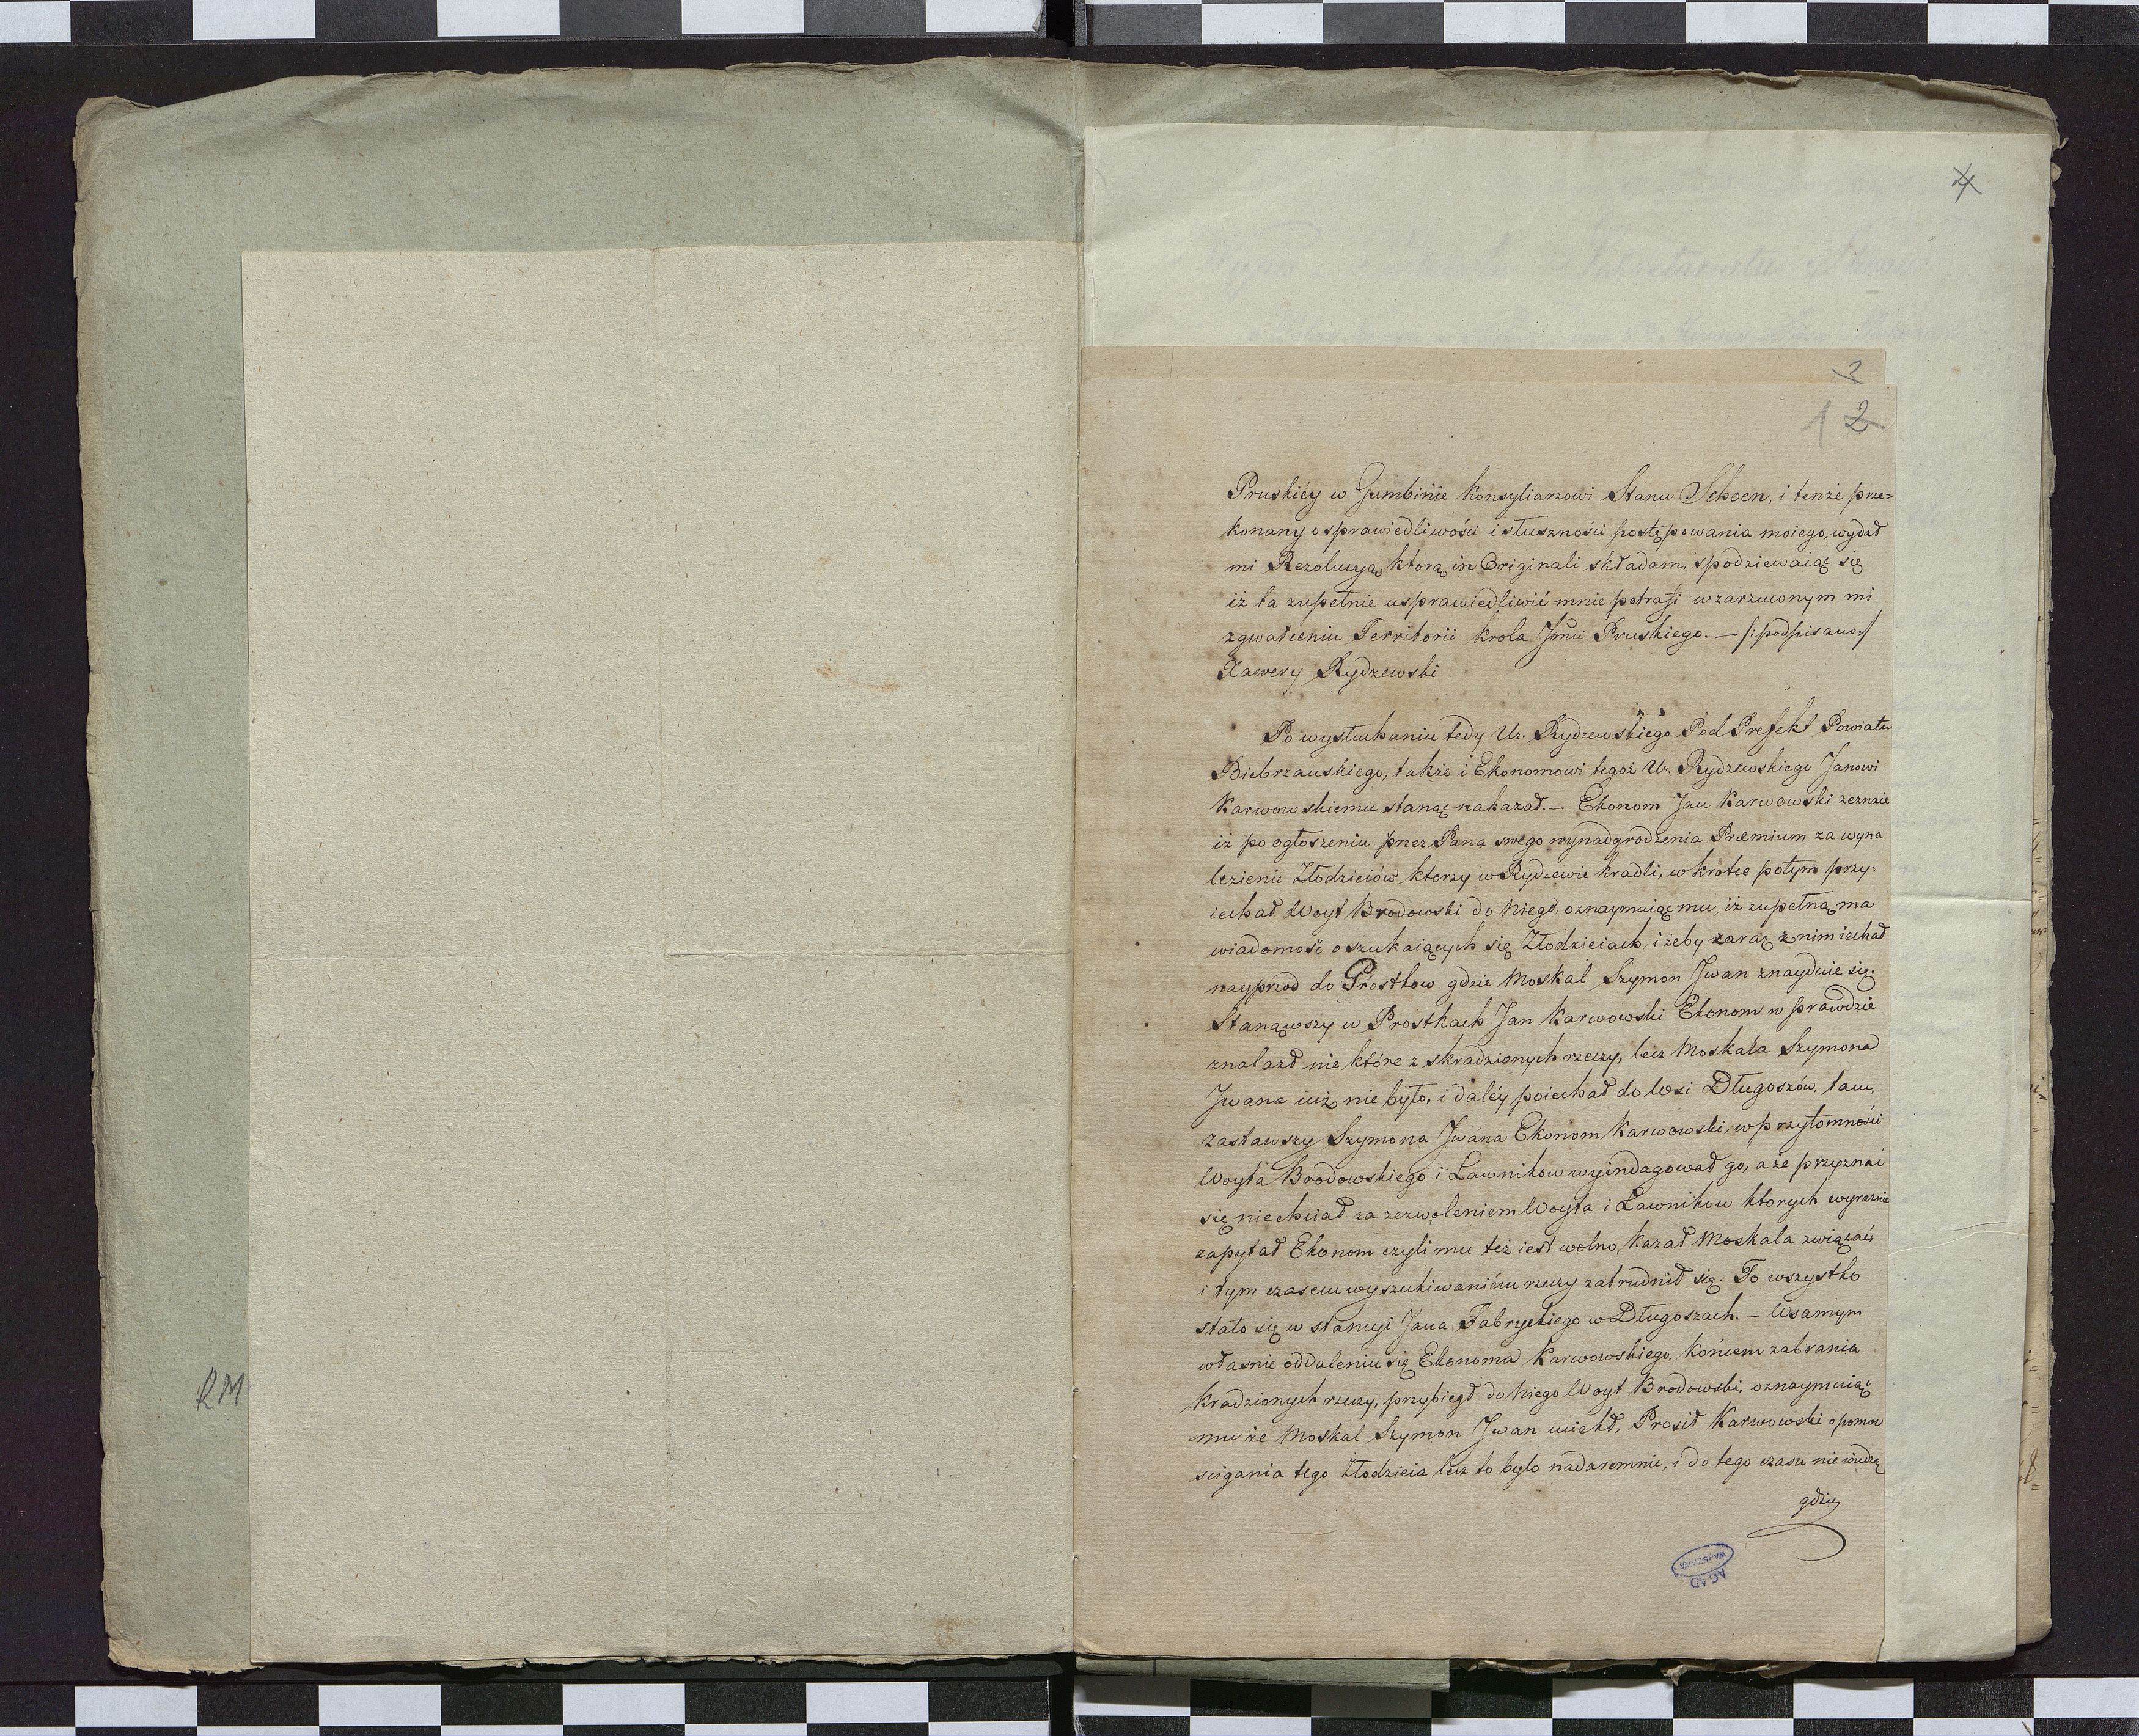 4
2
1 2
Pruskiéy w Gumbinie Konsyliarzowi Stanu Schoen, i tenże prze=
konany o sprawiedliwości i słuszności postępowania moiego, wydał
mi Rezolucyą, którą in Originali składam, spodziewaiąc się
iż ta zupełnie usprawiedliwić mnie potrafi w zarzuconym mi
zgwałceniu Territorii Krola Jmci Pruskiego. — /: podpisano :/
Xawery Rydzewski
Po wysłuchaniu tedy Ur. Rydzewskiego Pod Prefekt Powiatu
Biebrzanskiego, także i Ekonomowi tegoż Ur. Rydzewskiego Janowi
Karwowskiemu stanąć nakazał. — Ekonom Jan Karwowski zeznaie
iż po ogłoszeniu przez Pana swego wynadgrodzenia Præmium za wyna
lezienie Złodzieiów ktorzy w Rydzewie kradli, w krotce potym przy=
iechał Woyt Brodowski do niego, oznaymuiąc mu, iż zupełną ma
wiadomość o szukaiących się Złodzieiach, i żeby zaraz z nim iechał
nayprzod do Prostkow gdzie Moskal Szymon Jwan znayduie się.
Stanąwszy w Prostkach Jan Karwowski Ekonom w prawdzie
znalazł nie które z skradzionych rzeczy, lecz Moskala Szymona
Jwana iuż nie było, i daléy poiechał do Wsi Długoszów, tam,
zastawszy Szymona Jwana Ekonom Karwowski, w przytomności
Woyta Brodowskiego i Ławnikow wyindagował go, a że przyznać
się nie chciał za zezwoleniem Woyta i Ławnikow ktorych wyraznie
zapytał Ekonom czyli mu też iest wolno, kazał Moskala związać,
i tym czasem wyszukiwaniém rzeczy zatrudnił się. To wszystko
stało się w stancyi Jana Fabryckiego w Długoszach. — W samym
własnie oddaleniu się Ekonoma Karwowskiego, końcem zabrania
kradzionych rzeczy, przybiegł do niego Woyt Brodowski, oznaymuiąc
mu że Moskal Szymon Jwan uciekł, Prosił Karwowski o pomoc
scigania tego Złodzieia lecz to było nadaremnie, i do tego czasu nie wiedzą
gdzie
RM
AGAD
WARSZAWA